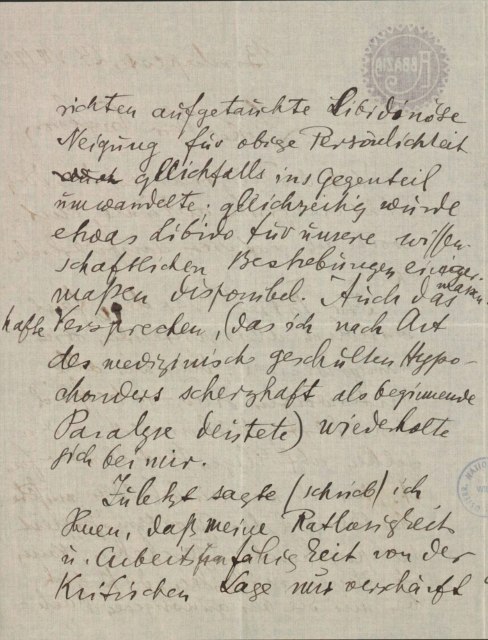 ABBAZIA
richten aufgetauchte Libidinöse
Neigung für obige Persönlichkeit
durch gleichfalls ins Gegenteil
umwandelte; gleichzeitig wurde
etwas Libido für unsere wissen-
schaftlichen Bestrebungen einiger-
maßen disponibel. Auch das
hafte Versprechen, (das ich nach Art
des medizinisch geschulten Hypo-
chonders scherzhaft als beginnende
Paralyse deutete) wiederholte
sich bei mir.
Zuletzt sagte (schrieb) ich
Ihnen, daß meine Ratlosigkeit
u. Arbeitsunfähigkeit von der
Kritischen Lage nur verschärft